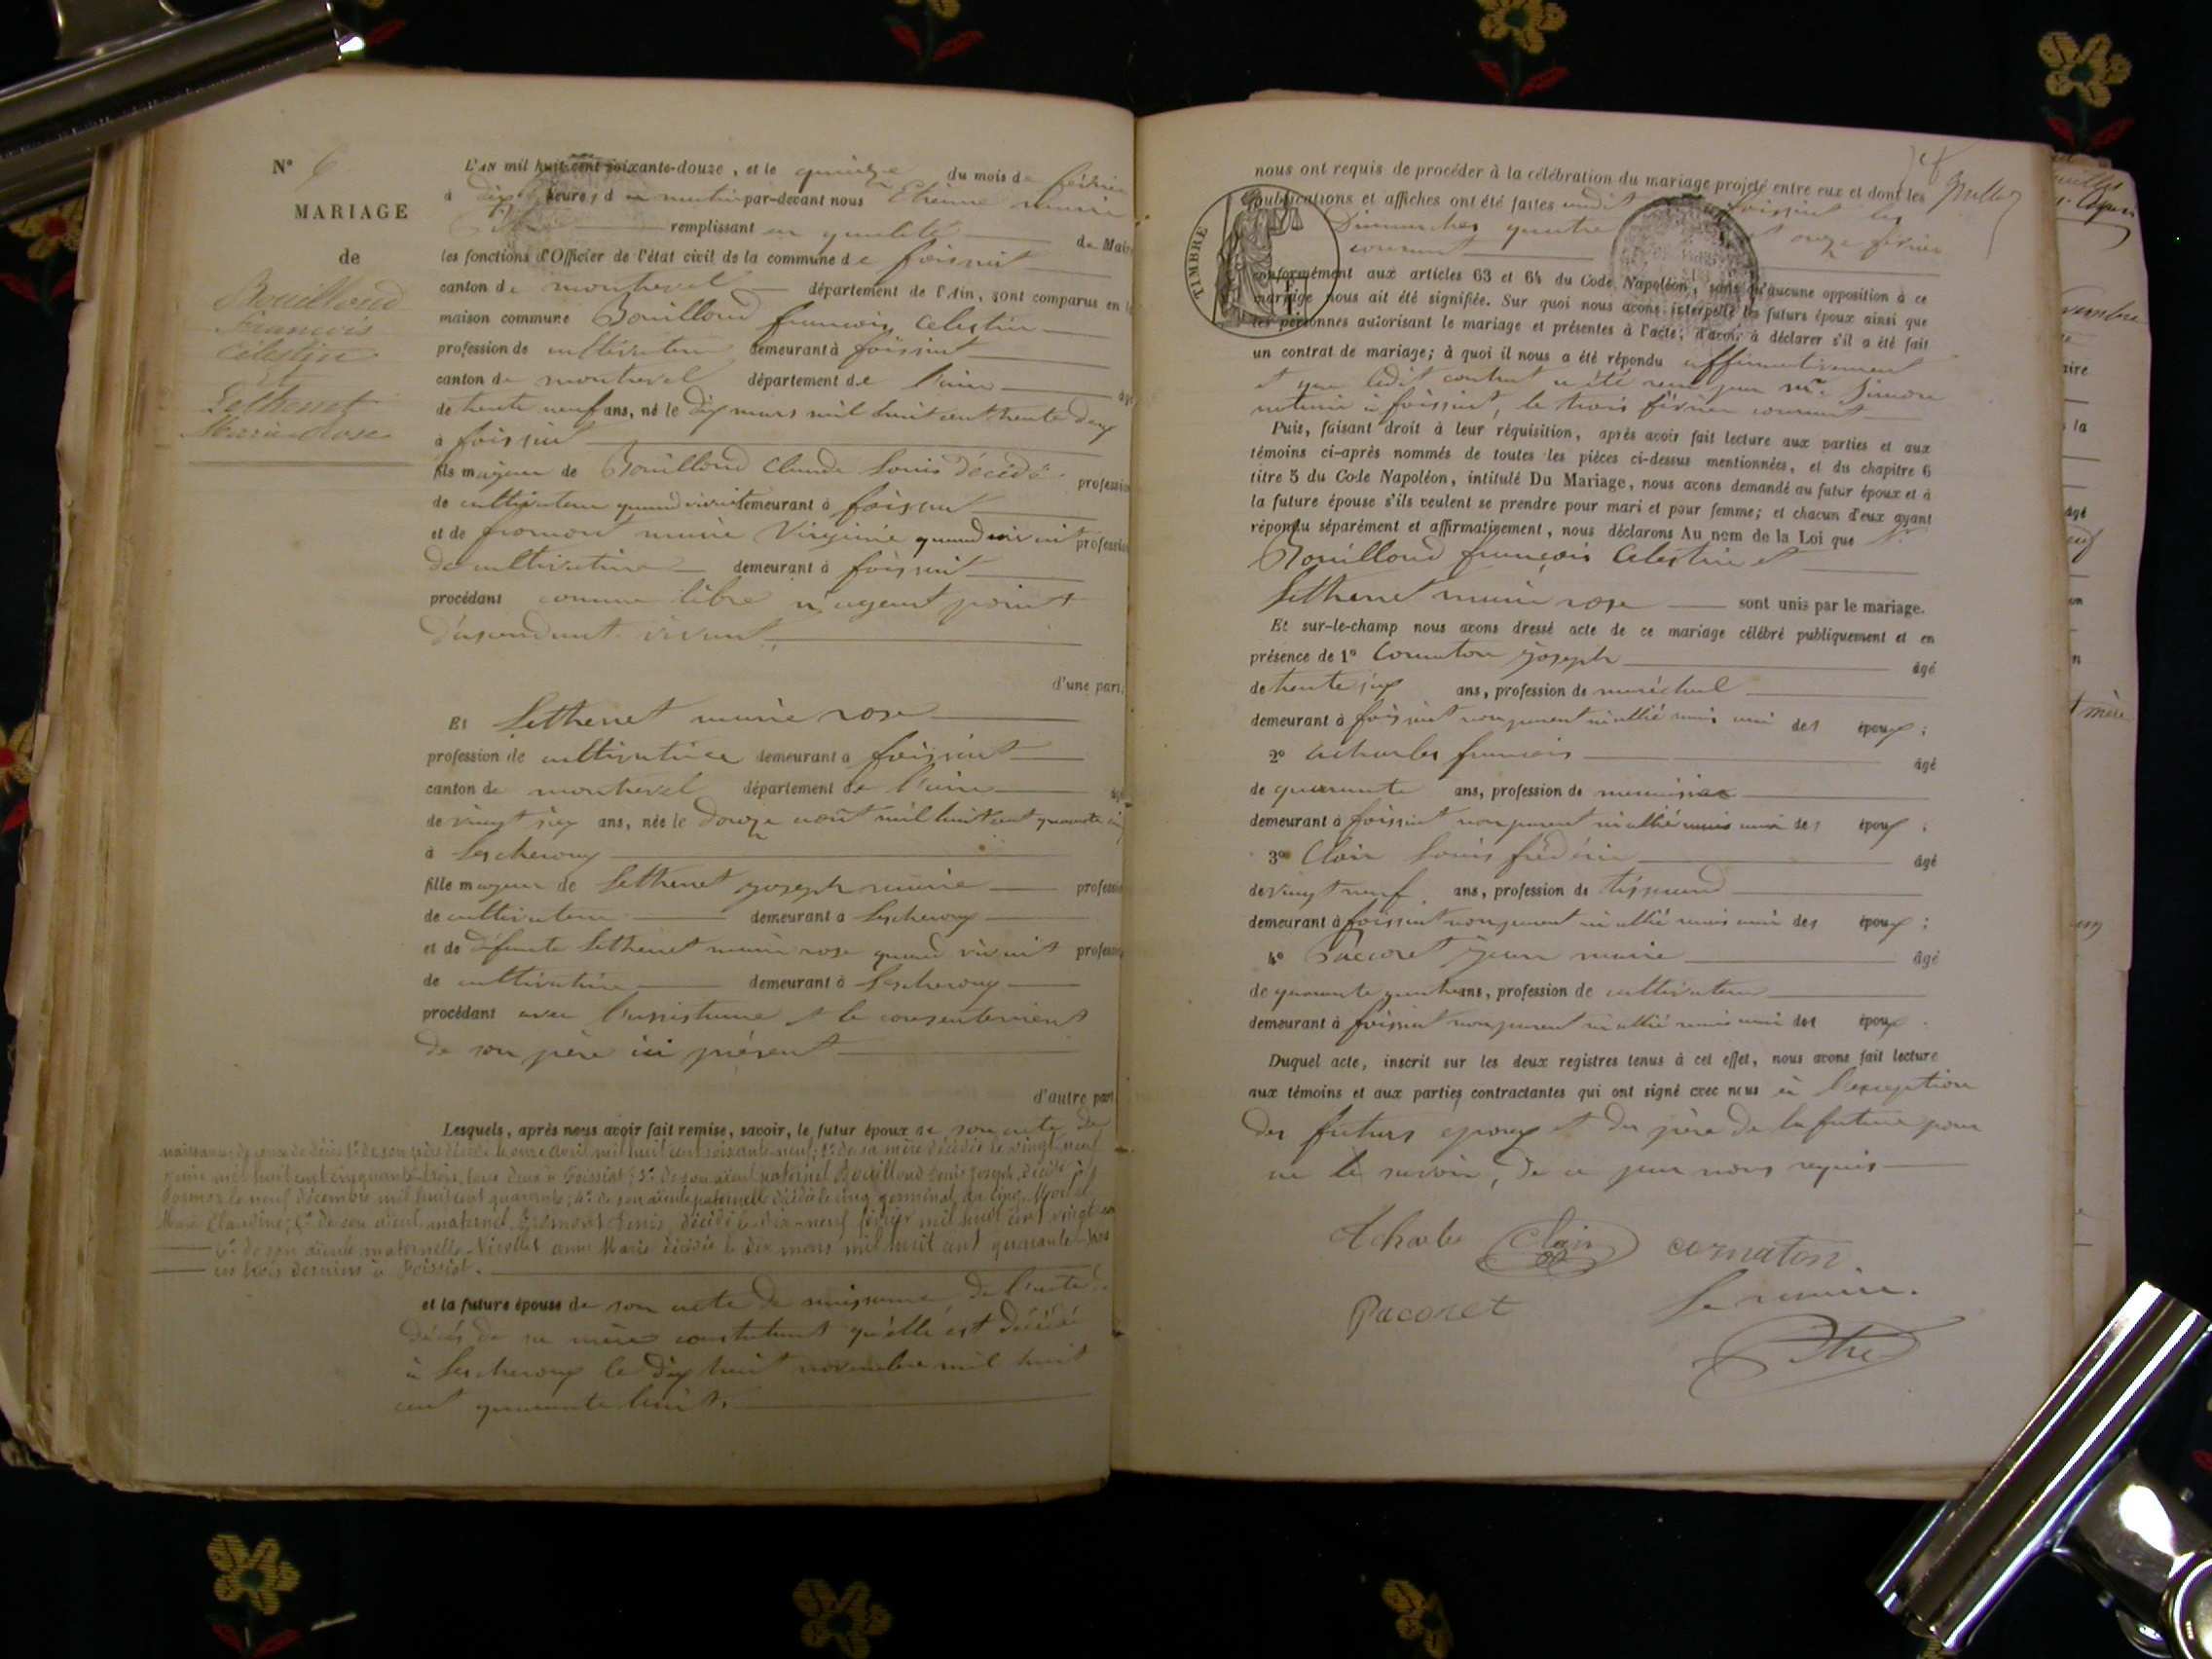 N° 6
MARIAGE
de
Bouilloud
François
Célestin
Et
Lethenet
Marie Rose
L'AN mil huit cent soixante-douze, et le quinze du mois de février
à dix heures du matin par-devant nous Etienne marie
remplissant en qualité de Maire
les fonctions d'Officier de l'état civil de la commune de foissiat
canton de montrevel département de l'Ain, sont comparus en la
maison commune Bouilloud françois Celestin
profession de cultivateur demeurant à foissiat
canton de montrevel département de l'ain âgé
de trente neuf ans, né le dix mars mil huit cent trente deux
à foissiat
fils majeur de Bouilloud Claude Louis décédé profession
de cultivateur quand vivait demeurant à foissiat
et de fromont marie Virginie quand vivait profession
de cultivatrice demeurant à foissiat
procédant comme libre n'ayant point
d'ascendant vivant
d'une part;
Et Lethenet marie rose
profession de cultivatrice demeurant a foissiat
canton de montrevel département de l'ain âgé
de vingt six ans, née le douze août mil huit cent quarante cinq
à Lescheroux
fille majeur de Lethenet joseph marie profession
de cultivateur demeurant a Lescheroux
et de défunte Lethenet marie rose quand vivait profession
de cultivatrice demeurant à Lescheroux
procédant avec l'assistance et le consentement
de son père ici présent
d'autre part
Lesquels, après nous avoir fait remise, savoir, le futur époux de son acte de
naissance, de ceux de décès 1° de son père décédé le onze avril mil huit cent soixante neuf; 2° de sa mère décédée le vingt neuf
mil huit cent cinquante tous deux à Foissiat; 3° de son aïeul paternel Bouilloud Louis Joseph, décédé à
le neuf décembre mil huit cent quarante; 4° de son aïeule paternelle décédée le cinq germinal an cinq,
Marie Claudine; 5° de son aïeul maternel Fromont Denis, décédé le dix-neuf février mil huit cent vingt
6° de son aïeule maternelle Nicollet anne Marie décédée le dix mars mil huit cent quarante trois
ces trois derniers à Foissiat.
et la future épouse de son acte de naissance, de l'acte de
décès de sa mère constatant qu'elle est décédé
à Lescheroux le dix huit novembre mil huit
cent quarante huit.
nous ont requis de procéder à la célébration du mariage projeté entre eux et dont les
publications et affiches ont été faites audit foissiat les
Dimanches quatre et onze février
courant
TIMBRE
conformément aux articles 63 et 64 du Code Napoléon, sans qu'aucune opposition à ce
mariage nous ait été signifiée. Sur quoi nous avons interpellé les futurs époux ainsi que
les personnes autorisant le mariage et présentes à l'acte, d'avoir à déclarer s'il a été fait
un contrat de mariage; à quoi il nous a été répondu affirmativement
et que ledit contrat a été reçu par me. Simon
notaire à foissiat, le trois février courant
Puis, faisant droit à leur réquisition, après avoir fait lecture aux parties et aux
témoins ci-après nommés de toutes les pièces ci-dessus mentionnées, et du chapitre 6
titre 5 du Code Napoléon, intitulé Du Mariage, nous avons demandé au futur époux et à
la future épouse s'ils veulent se prendre pour mari et pour femme; et chacun d'eux ayant
répondu séparément et affirmativement, nous déclarons Au nom de la Loi que
Bouilloud françois Celestin et
Lethenet marie rose sont unis par le mariage.
Et sur-le-champ nous avons dressé acte de ce mariage célébré publiquement et en
présence de 1° Cornaton joseph âgé
de trente six ans, profession de maréchal
demeurant à foissiat non parent ni allié mais ami des époux;
2° Acharles francois âgé
de quarante ans, profession de menuisier
demeurant à foissiat non parent ni allié mais ami des époux;
3° Clair Louis frédéric âgé
de vingt neuf ans, profession de tisserand
demeurant à foissiat non parent ni allié mais ami des époux;
4° Paccoret Jean marie âgé
de quarante quatre ans, profession de cultivateur
demeurant à foissiat non parent ni allié mais ami des époux.
Duquel acte, inscrit sur les deux registres tenus à cet effet, nous avons fait lecture
aux témoins et aux parties contractantes qui ont signé avec nous à l'exception
des futurs epoux et du père de la future pour
ne le savoir, de ce par nous requis
Acharles Clair cornaton
Pacoret Le maire.